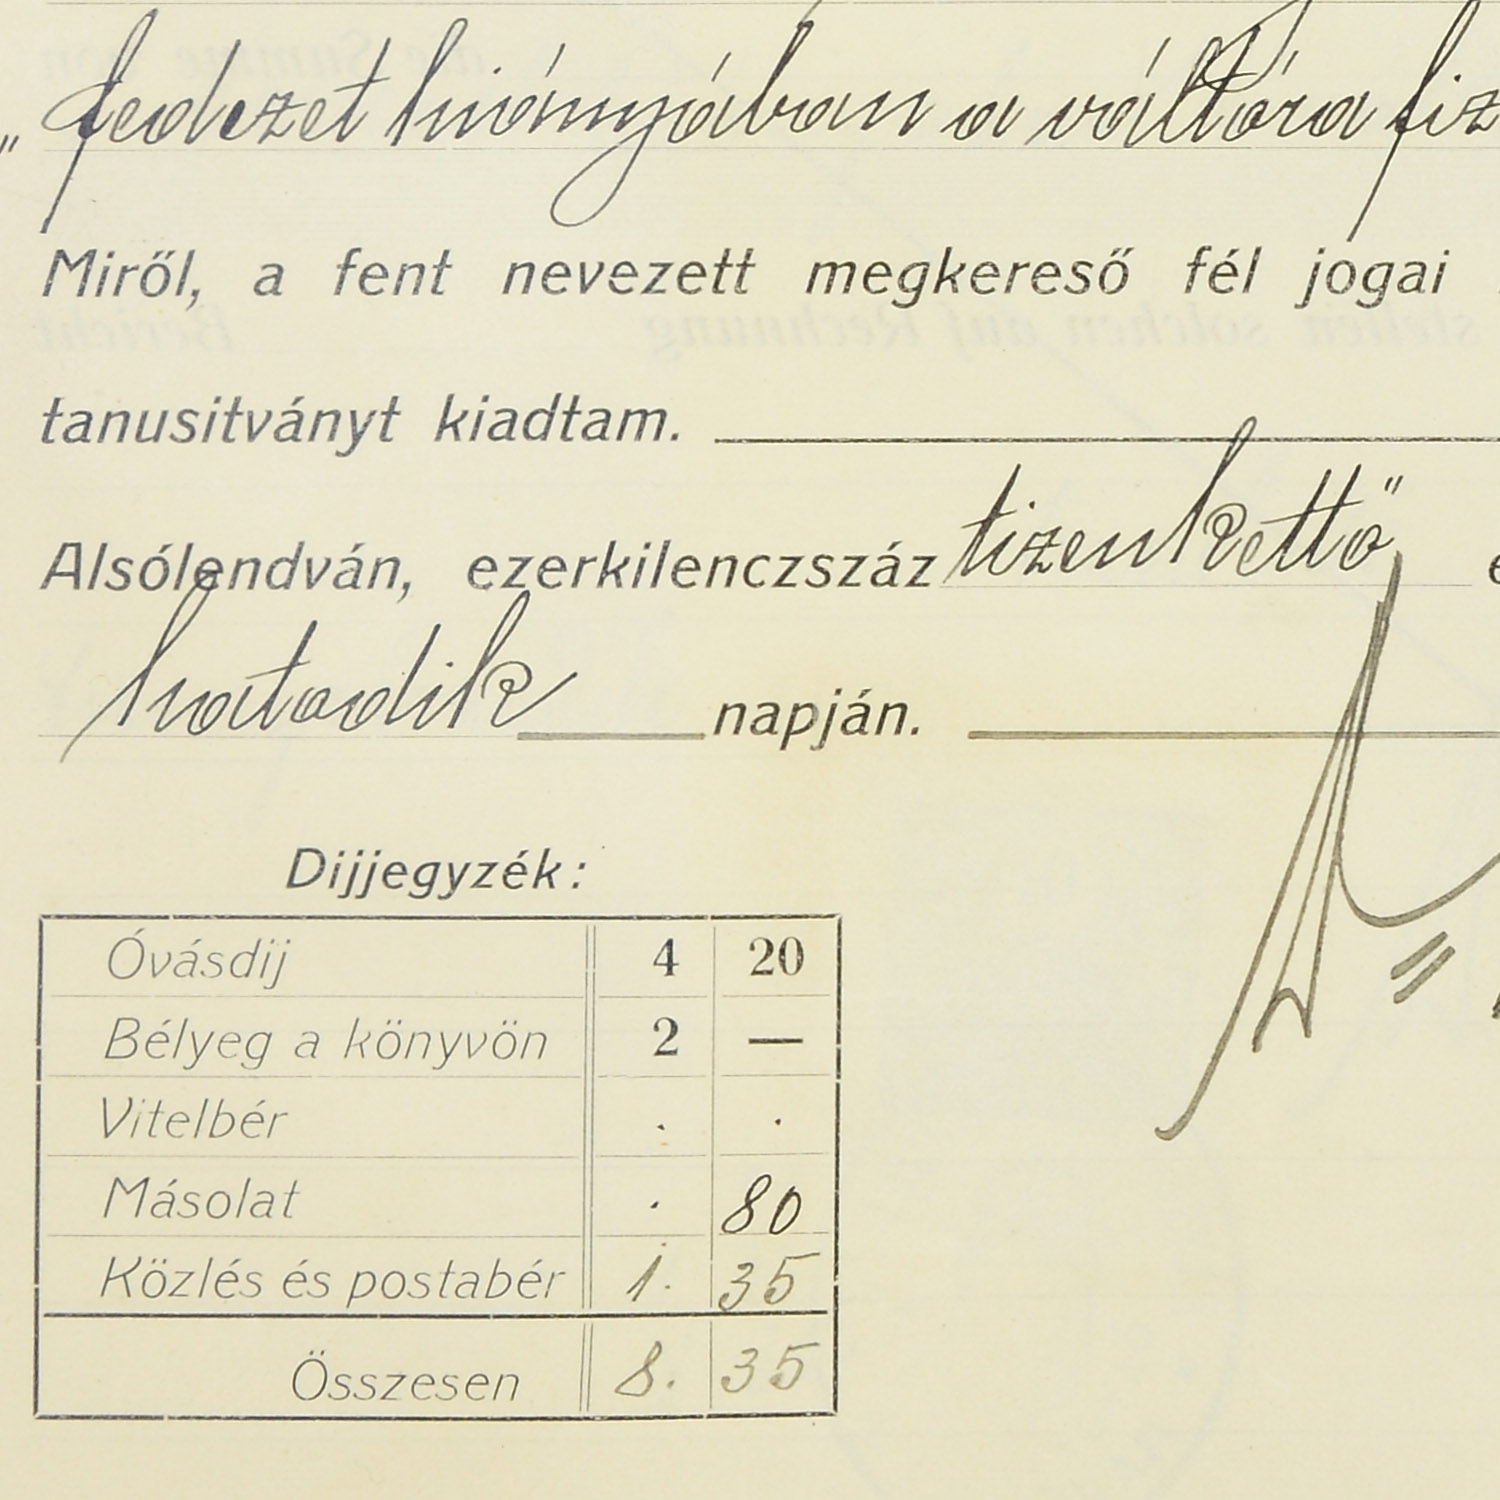 „fedezet hiányában a váltóra fiz
Miről, a fent nevezett megkereső fél jogai
tanusitványt kiadtam.
Alsólendván, ezerkilenczszáz tizenkettő
hatodik napján.
Dijjegyzék:
Óvásdij 4 20
Bélyeg a könyvön 2 —
Vitelbér . .
Másolat . 80
Közlés és postabér 1. 35
Összesen 8. 35